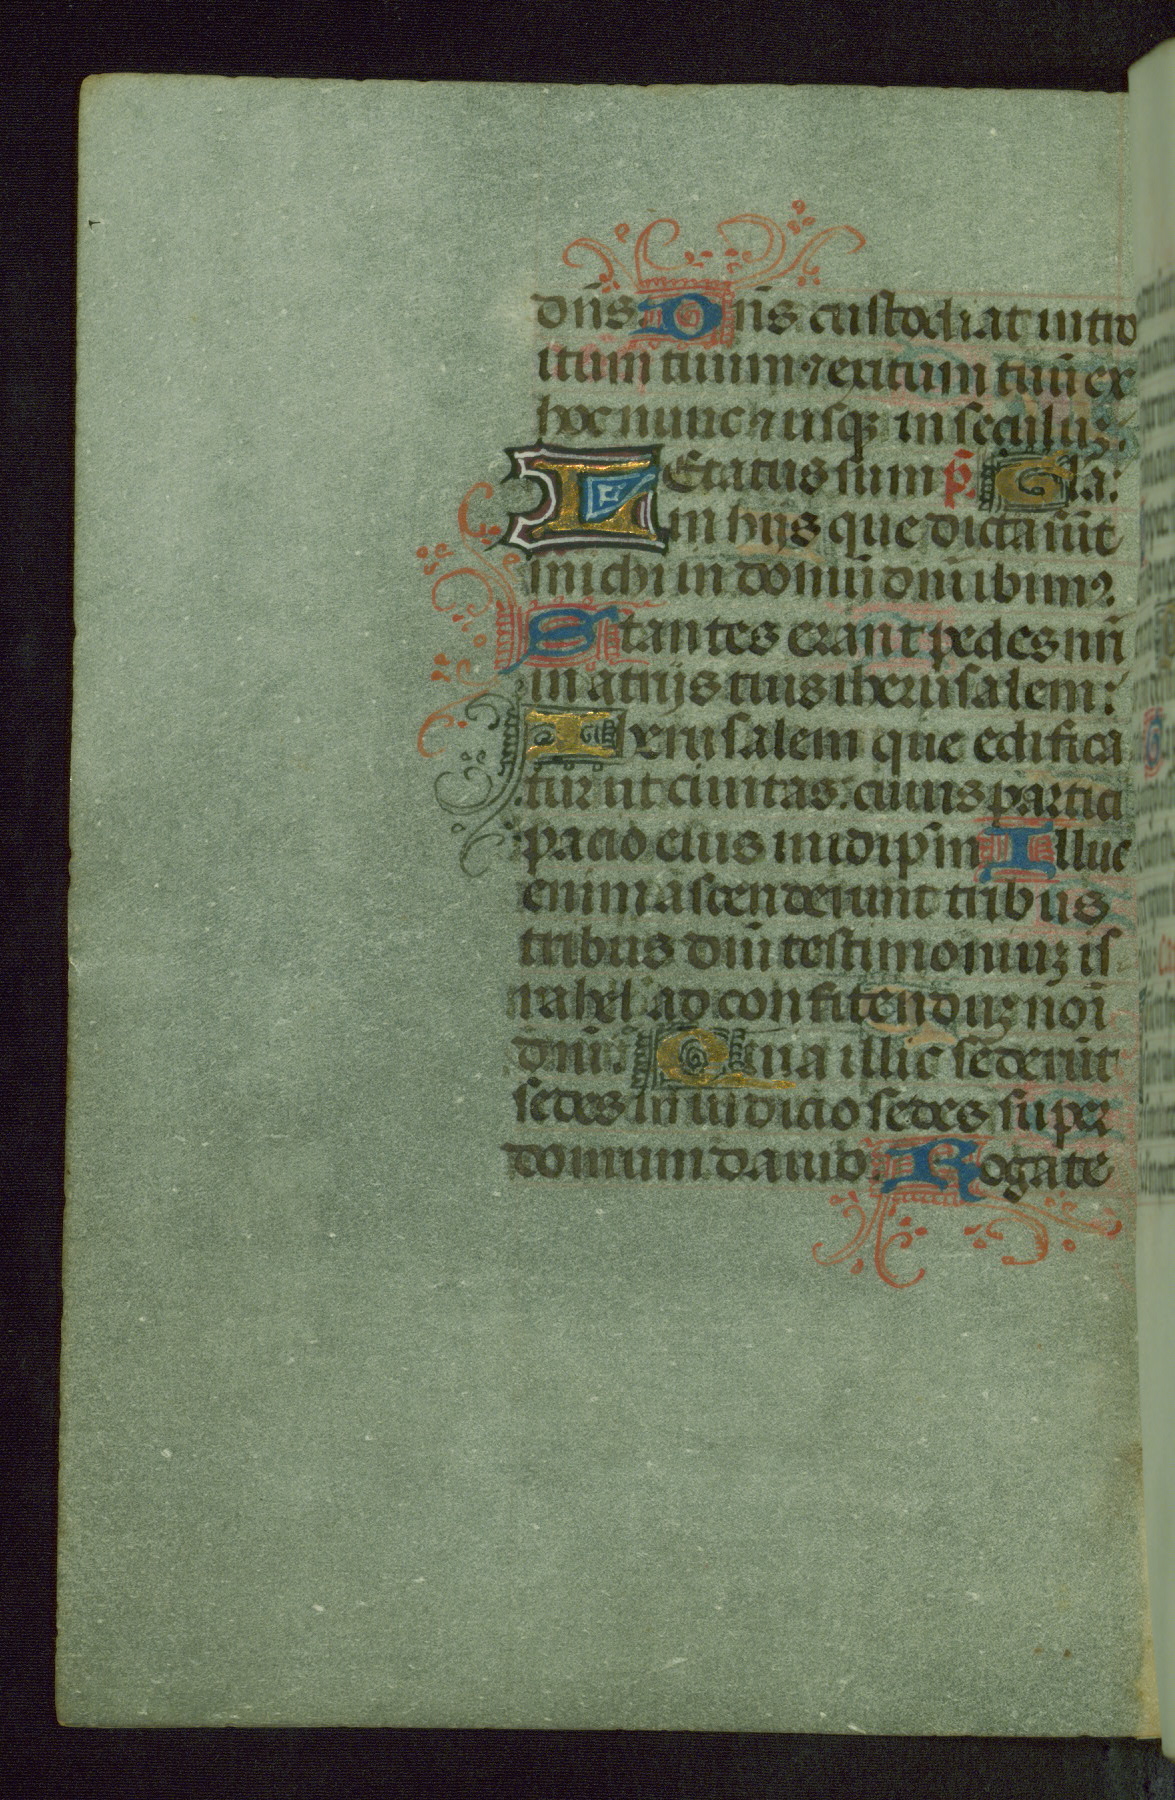 dn̄s Dn̄s custodiat intro
itum tuum ⁊ exitum tuū ex
hoc nunc ⁊ usqꝫ in seculuꝫ.
LEtatus sum p̄. Gl̄a:
in hijs que dicta sūt
michi in domū dn̄i ibimꝰ
Stantes erant pedes nr̄i
in atrijs tuis iherusalem:
Iherusalem que edifica
tur ut ciuitas: cuius partici
pacio eius in idip̄m Illuc
enim ascenderunt tribus
tribus dn̄i testimoniuꝫ is
rahel ad confitenduꝫ noī
dn̄i: Quia illic sederūt
sedes in iudicio sedes super
domum dauid. Rogate